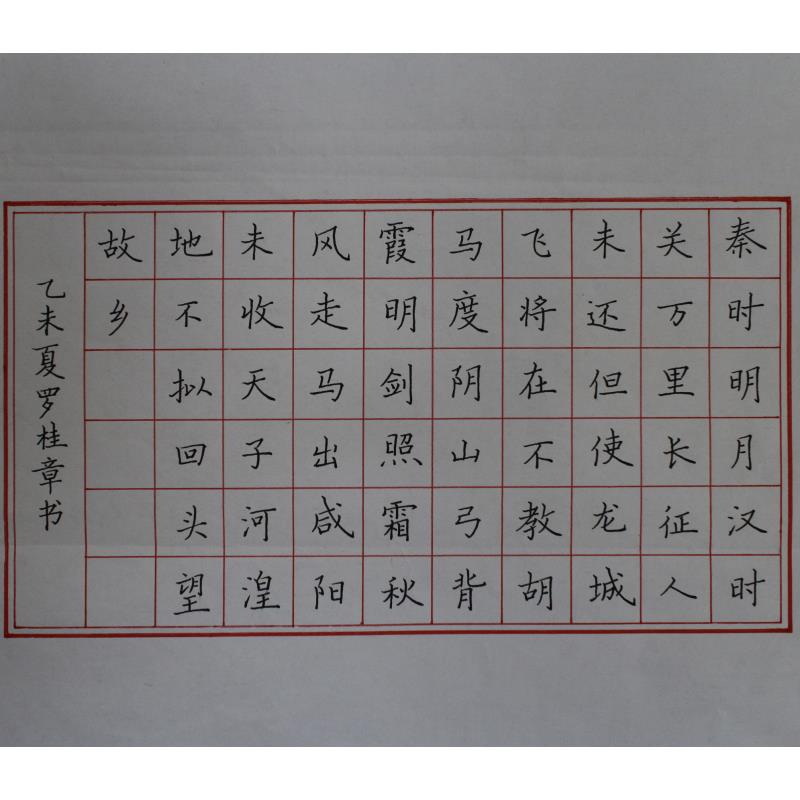 秦时明月汉时
关万里长征人
未还但使龙城
飞将在不教胡
马度阴山弓背
霞明剑照霜秋
风走马出咸阳
未收天子河湟
地不拟回头望
故乡
乙未夏罗桂章书